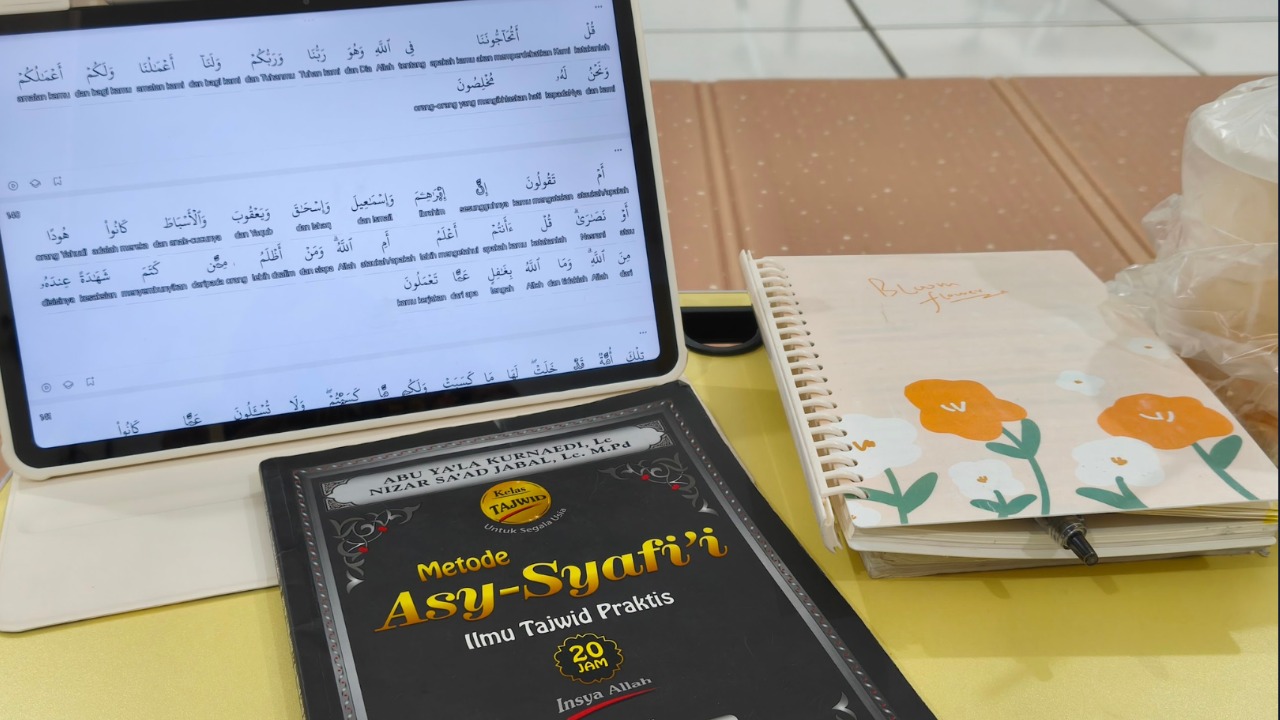 قُلْ أَتُحَآجُّونَنَا فِى ٱللَّهِ وَهُوَ رَبُّنَا وَرَبُّكُمْ وَلَنَآ أَعْمَـٰلُنَا وَلَكُمْ أَعْمَـٰلُكُمْ
amalan kamu dan bagi kamu amalan kami dan bagi kami dan Tuhanmu Tuhan kami dan Dia Allah tentang apakah kamu akan memperdebatkan Kami katakanlah
وَنَحْنُ لَهُۥ مُخْلِصُونَ
orang-orang yang mengikhlaskan hati kepadaNya dan kami
140
أَمْ تَقُولُونَ إِنَّ إِبْرَٰهِـۧمَ وَإِسْمَـٰعِيلَ وَإِسْحَـٰقَ وَيَعْقُوبَ وَٱلْأَسْبَاطَ كَانُوا۟ هُودًا
orang Yahudi adalah mereka dan anak-cucunya dan Yaqub dan Ishaq dan Ismail Ibrahim sesungguhnya kamu mengatakan ataukah/apakah
أَوْ نَصَـٰرَىٰ ۗ قُلْ ءَأَنتُمْ أَعْلَمُ أَمِ ٱللَّهُ ۗ وَمَنْ أَظْلَمُ مِمَّن كَتَمَ شَهَـٰدَةً عِندَهُۥ
disisinya kesaksian menyembunyikan daripada orang lebih dzalim dan siapa Allah ataukah/apakah lebih mengetahui apakah kamu katakanlah Nasrani atau
مِنَ ٱللَّهِ ۗ وَمَا ٱللَّهُ بِغَـٰفِلٍ عَمَّا تَعْمَلُونَ
kamu kerjakan dari apa lengah Allah dan tidaklah Allah dari
141
تِلْكَ أُمَّةٌ قَدْ خَلَتْ ۖ لَهَا مَا كَسَبَتْ وَلَكُم مَّا كَسَبْتُمْ ۖ وَلَا تُسْـَٔلُونَ عَمَّا كَانُوا۟
ABU YA'LA KURNAEDI, Lc
NIZAR SA'AD JABAL, Lc. M.Pd
Kelas
TAJWID
Untuk Segala Usia
Metode
Asy-Syafi'i
Ilmu Tajwid Praktis
20
JAM
Insya Allah
Bloom
flower